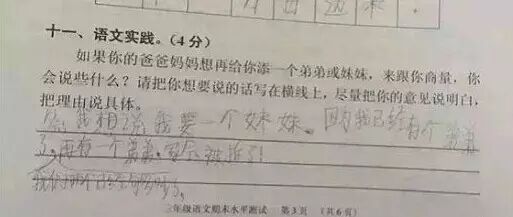 十一、语文实践。(4分)
如果你的爸爸妈妈想再给你添一个弟弟或妹妹，来跟你商量，你
会说些什么？请把你想要说的话写在横线上，尽量把你的意见说明白，
把理由说具体。
我想说我要一个妹妹。因为我已经有个弟弟
了，再有一个弟弟，家会被拆了！
我们两个已经
三年级语文期末水平测试 第3页 (共6页)